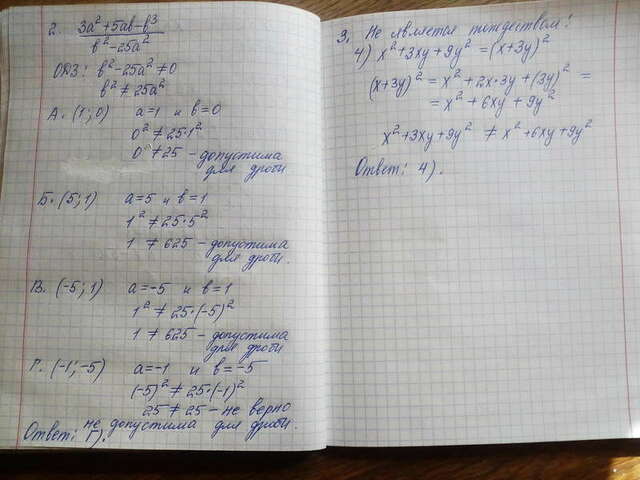 2. 3a² + 5ab - b³
b² - 25a²
ОДЗ: b² - 25a² ≠ 0
b² ≠ 25a²
А. (1; 0) a = 1 и b = 0
0² ≠ 25·1²
0 ≠ 25 - допустима
для дроби
Б. (5; 1) a = 5 и b = 1
1² ≠ 25·5²
1 ≠ 625 - допустима
для дроби.
В. (-5; 1) a = -5 и b = 1
1² ≠ 25·(-5)²
1 ≠ 625 - допустима
для дроби
Г. (-1; -5) a = -1 и b = -5
(-5)² ≠ 25·(-1)²
25 ≠ 25 - не верно
не допустима для дроби.
Ответ: Г).
3. Не является тождеством!
4) x² + 3xy + 9y² = (x + 3y)²
(x + 3y)² = x² + 2x·3y + (3y)² =
= x² + 6xy + 9y²
x² + 3xy + 9y² ≠ x² + 6xy + 9y²
Ответ: 4).